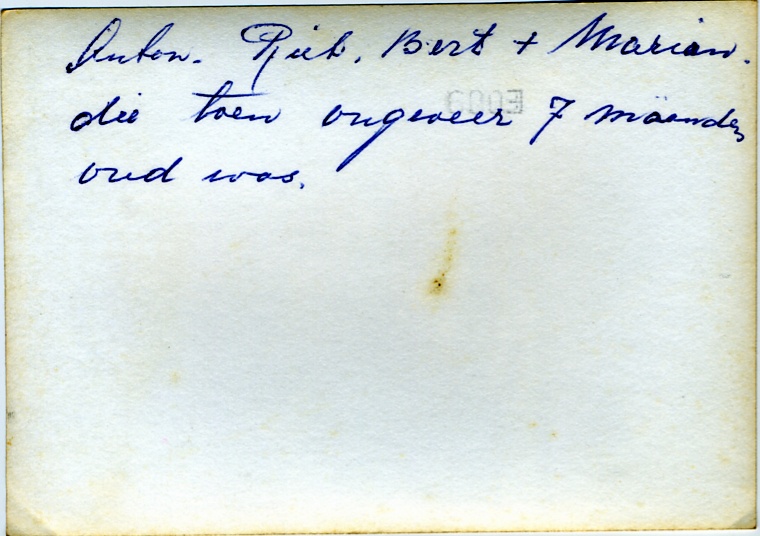 Anton. Riek, Bert + Marian.
die toen ongeveer 7 maanden
oud was.